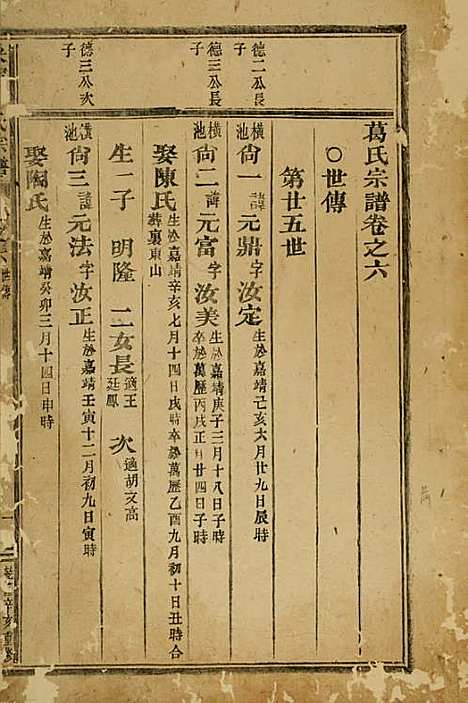 葛氏宗譜卷之六
〇世傳
第廿五世
德二公長子
橫池
尙一諱元鼎字汝定生於嘉靖己亥六月廿九日辰時
德三公長子
橫池
尙二諱元富字汝美生於嘉靖庚子三月十八日子時
卒於萬歷丙戌正月廿四日子時
娶陳氏生於嘉靖辛亥七月十四日戌時卒於萬歷乙酉九月初十日丑時合
葬裏東山
生一子 明隆 二女長適王廷鳳 次適胡文高
德三公次子
橫池
尙三諱元法字汝正生於嘉靖壬寅十二月初九日寅時
娶陶氏生於嘉靖癸卯三月十四日申時
氏宗譜
世傳
辛亥重修